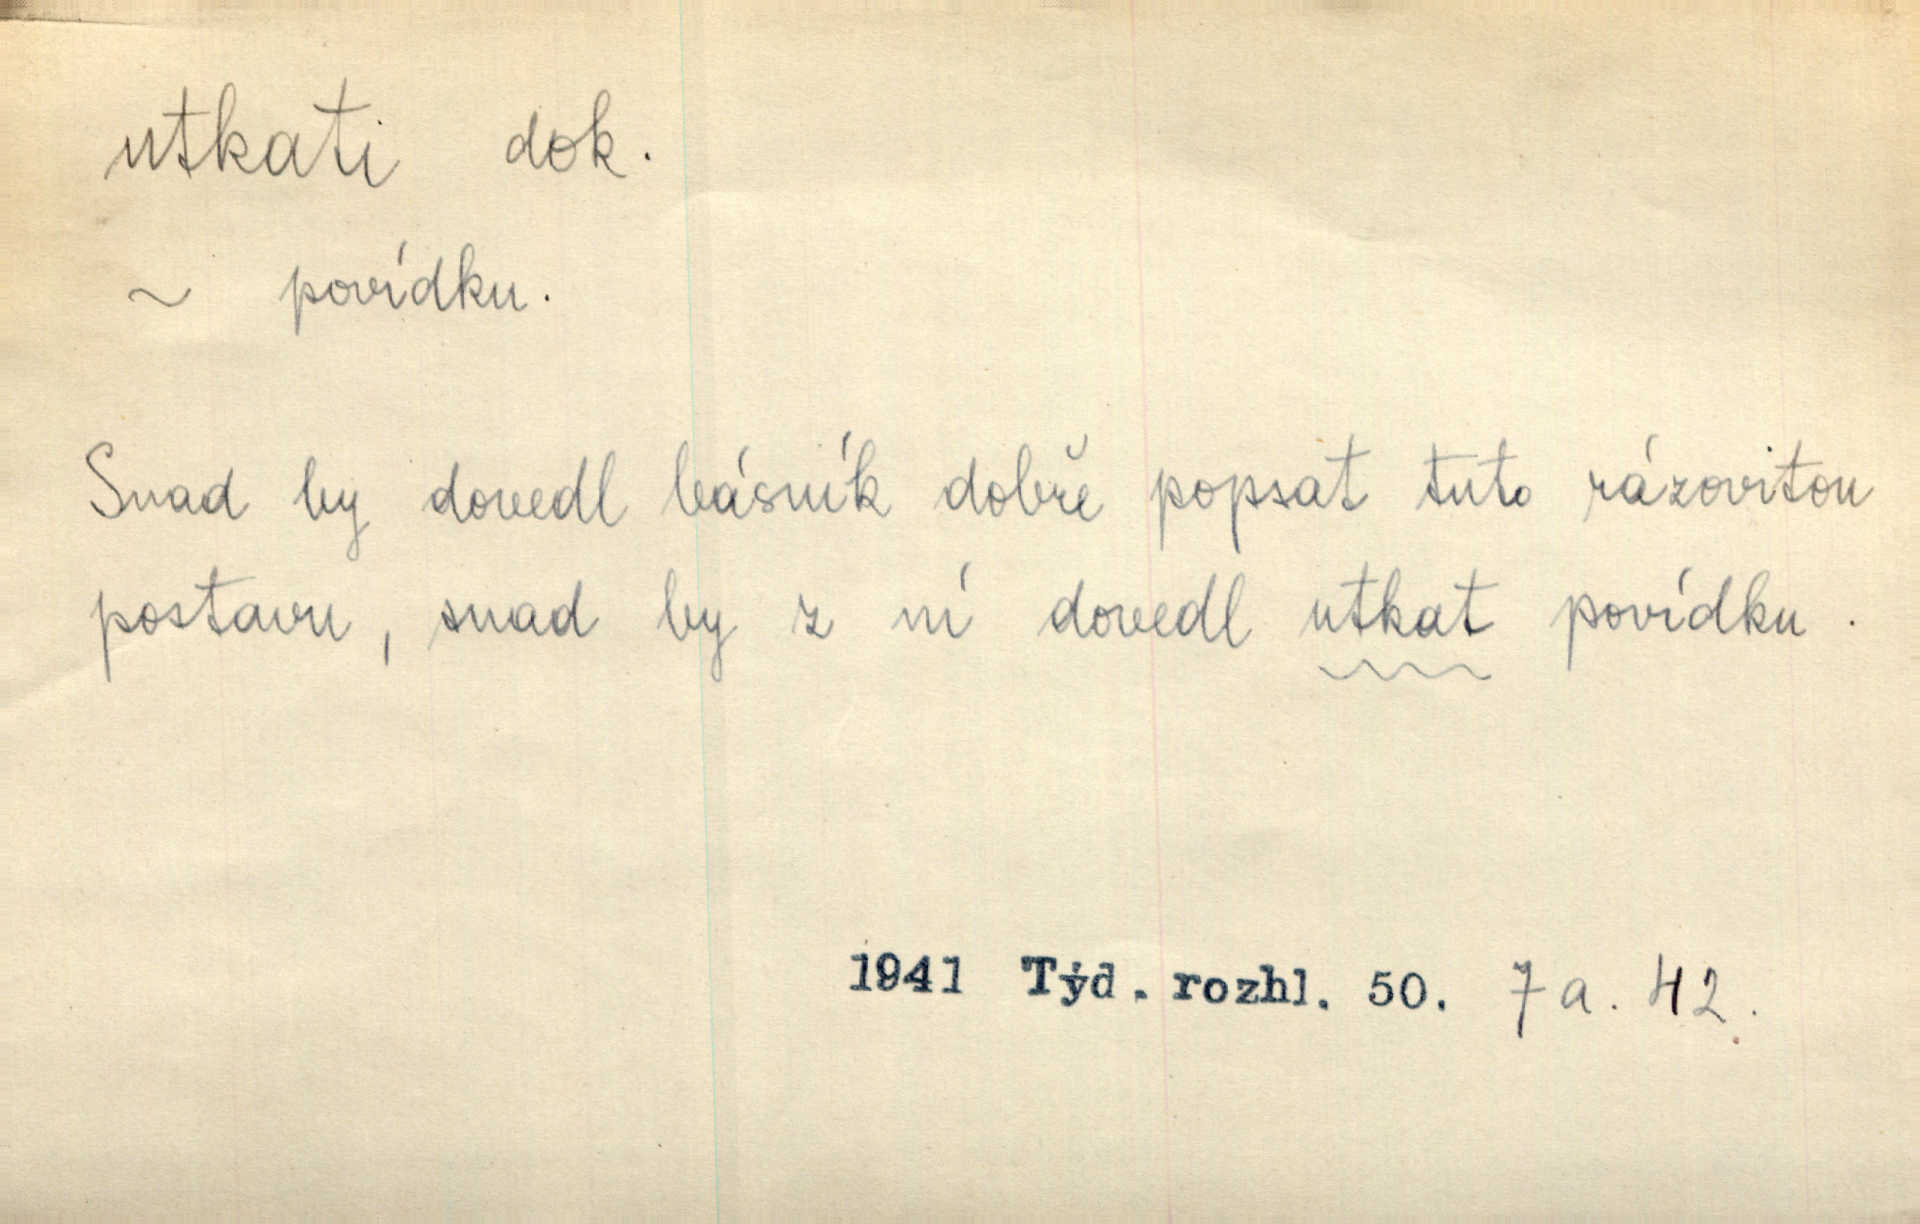 utkati dok.
~ povídku.
Snad by dovedl básník dobře popsat tuto rázovitou
postavu, snad by z ní dovedl utkat povídku.
1941 Týd. rozhl. 50. 7a. 42.